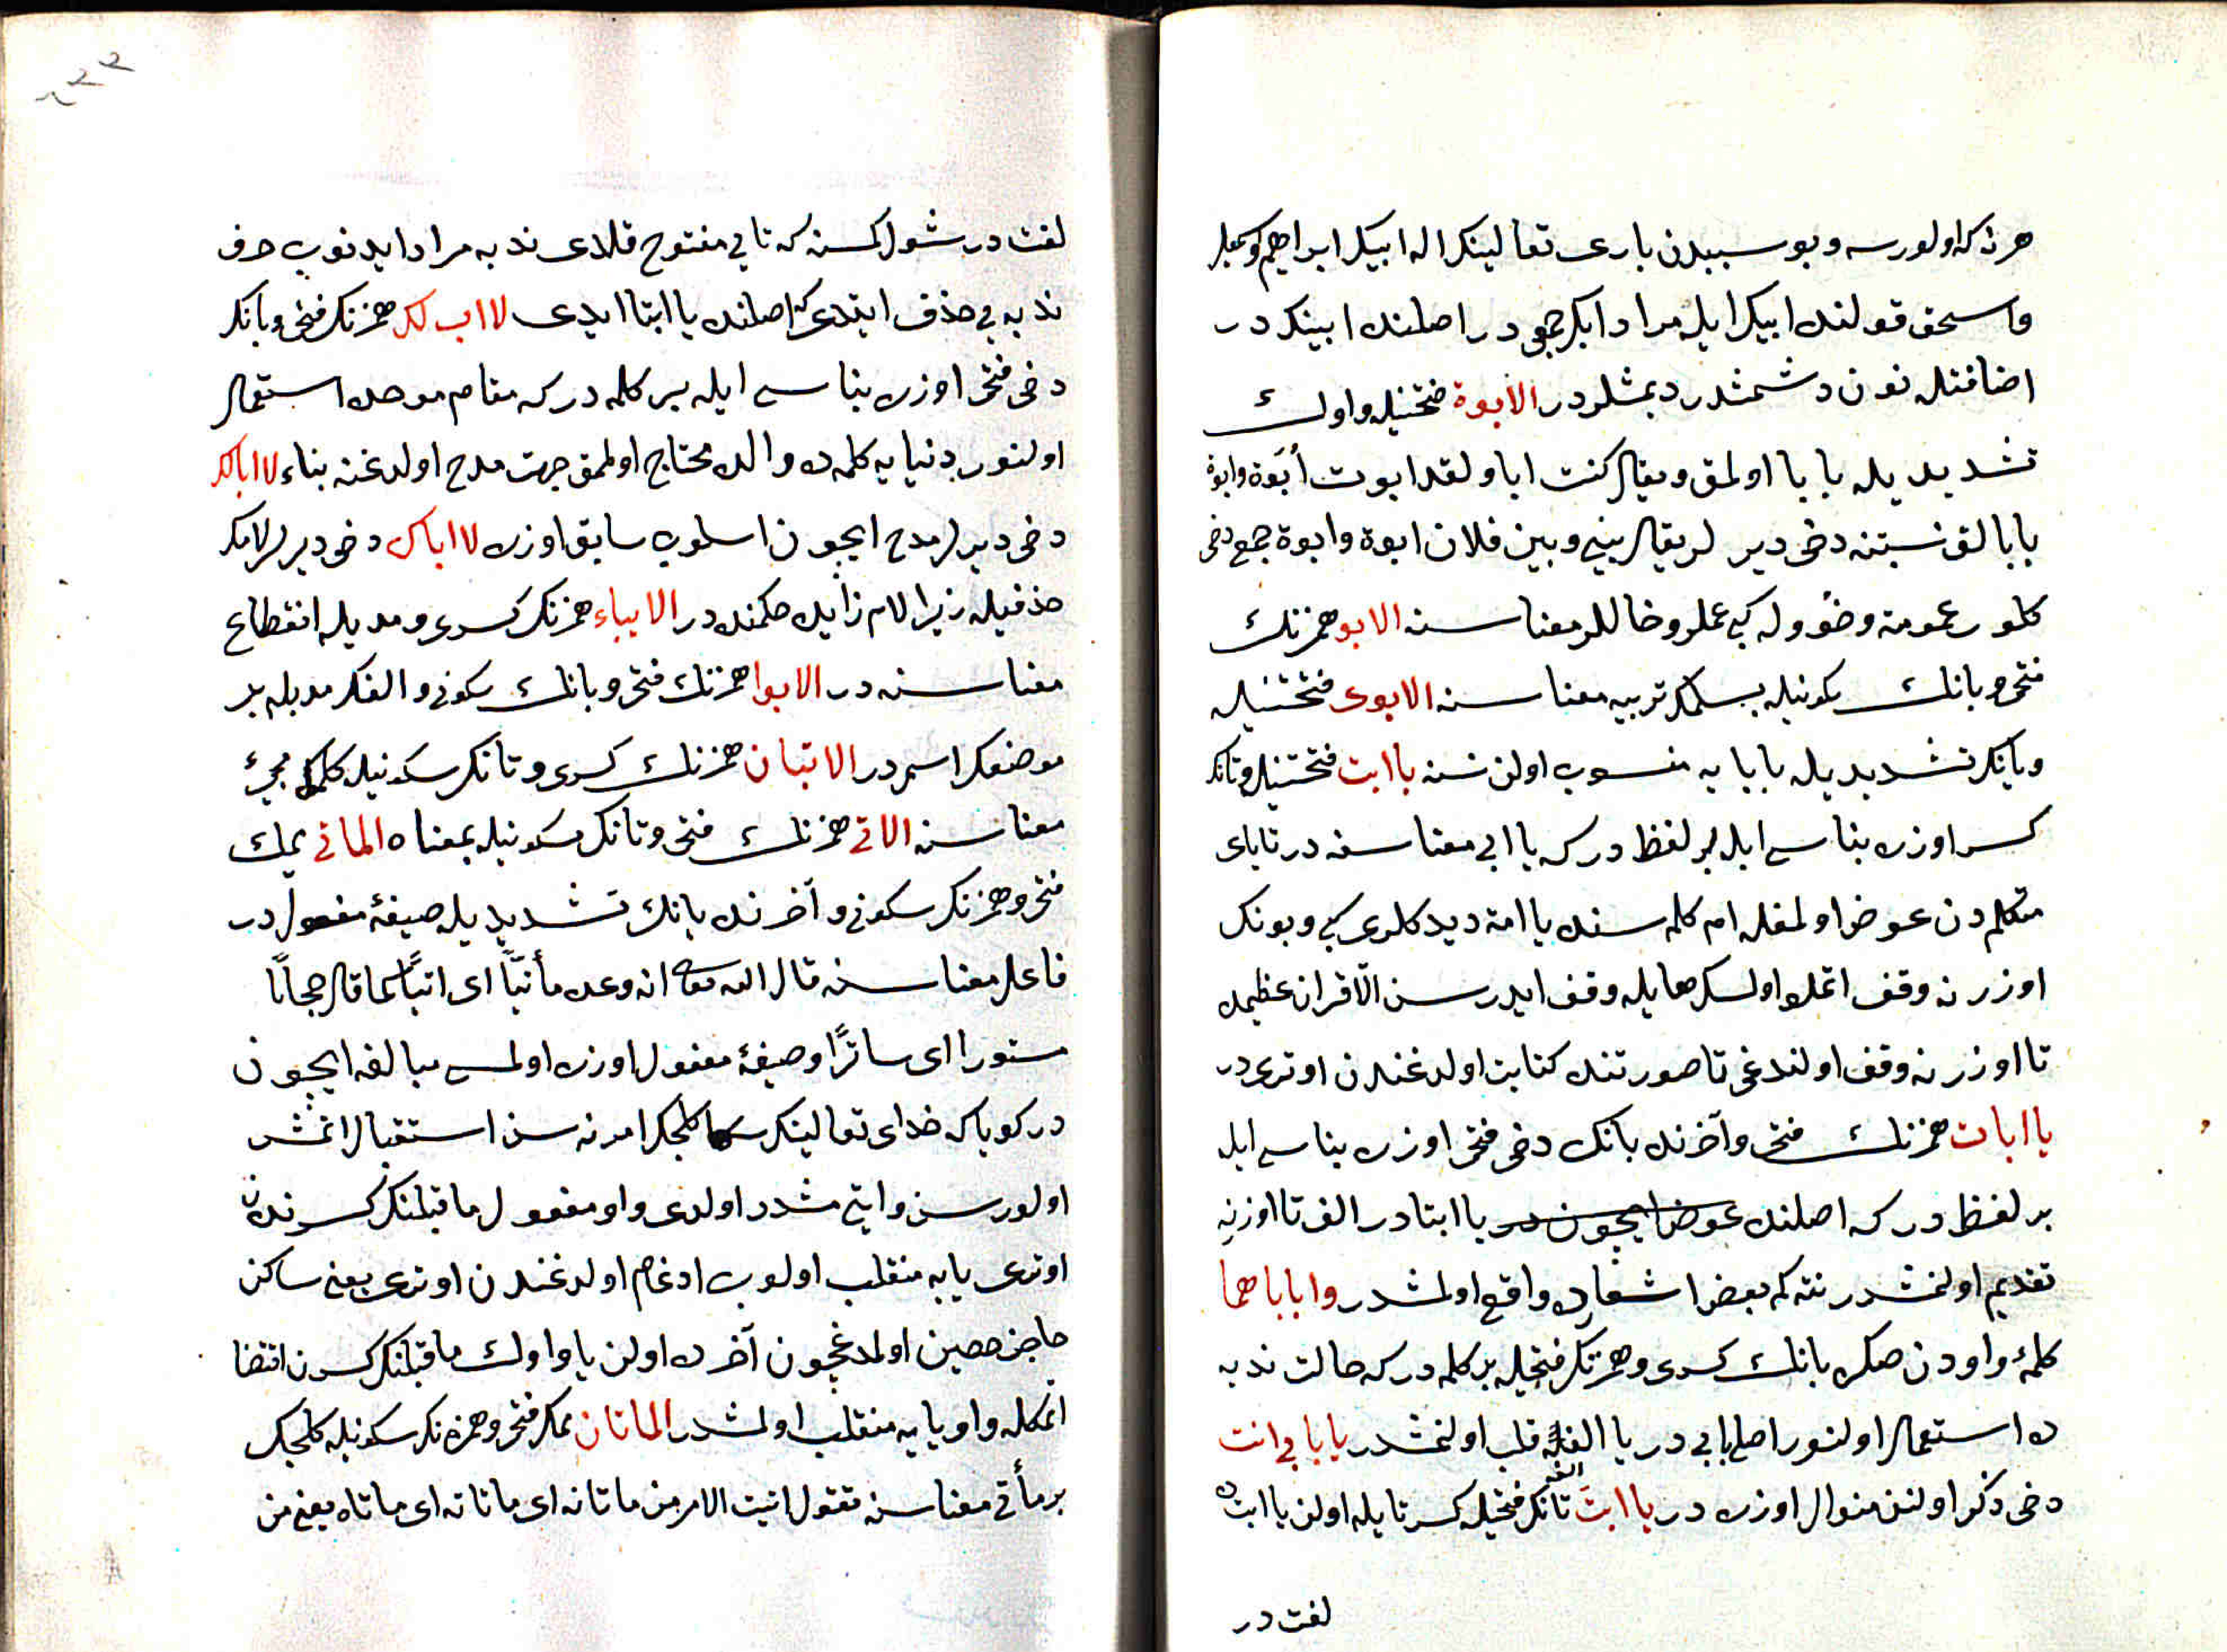 هر نه که اولورسه و بو سببدن باری تعالینک اله ابیک ابراهیم و اسمعیل
واسحق قولنده ابیک ایله مراد ابک جمعی در اصلنده ابینک در
اضافتله نون دشمشدر دیمشلردر الابوة ضمتینله واوك
تشدیدیله بابا اولمق ویقال کنت ابا ولقد ابوت أبوة وابوة
بابالق نسبتنه دخی دیرلر یقال بینی وبین فلان ابوة وابوة جمع دخی
کلور عمومة وخؤوله کبی عملر وخاللر معناسنه الابو همزنك
فتحی وبانك سکونیله بسلمك تربیه معناسنه الابوی فتحتینله
ویانک تشدیدیله بابایه منسوب اولن نسنه یا ابت فتحتینله وتانک
کسر اوزره بناسی ایله بر لفظ درکه یا ابی معناسنه در تا یای
متکلمدن عوض اولمغله ام کلمه سنده یا امة دیدکلری کبی وبونک
اوزرنه وقف اتملو اولسک ها یله وقف ایدرسن الا قران عظیمده
تا اوزرنه وقف اولندغی تا صورتنده کتابت اولدغندن اوتری در
یا ابات همزنك فتحی وآخرنده بانک دخی فتحی اوزره بناسی ایله
بر لفظ درکه اصلنده عوض ایچون در یا ابتا در الف تا اوزرنه
تقدیم اولنمشدر نته کم بعض اشعارده واقع اولمشدر وا بابا هما
کلمهٔ واودن صکره بانك کسری وهمزنک فتحیله بر کلمه درکه حالت ندبه
ده استعمال اولنور اصلی بابی در یا الفه قلب اولنمشدر یا بابی انت
دخی ذکر اولنن منوال اوزره در یا ابت تانک فتحیله کسر تا یله اولن یا ابت ده
لغت در
لغت در شول کسنه که تایی مفتوح قلدی ندبه مراد ایدنوب حرف
ندبه یی حذف ایتدی که اصلنده یا ابتا ایدی لا اب لک همزنک فتحی وبانک
دخی فتحی اوزره بناسی ایله بر کلمه درکه مقام مدحده استعمال
اولنور دنیایه کلمه ده والده محتاج اولمق جهت مدح اولدغنه بناء لا ابا لک
دخی دیرلر مدح ایچون اسلوب سابق اوزره لا اباک دخی دیرلر لامک
حذفیله زیرا لام زایده حکمنده در الابیاء همزنک کسری ومدیله انقطاع
معناسنه در الابوا همزنك فتحی وبانك سکونی والفک مدیله بر
موضعک اسمدر الاتیان همزنك کسری وتانک سکونیله کلمك مجئ
معناسنه الاتی همزنك فتحی وتانک سکونیله بمعناه الماتی میمك
فتحی وهمزنک سکونی وآخرنده یانك تشدیدیله صیغهٔ مفعول در
فاعل معناسنه قال الله تعالی انه وعده مأتیّاً ای اتیاً کما قال حجابًا
مستورا ای ساترًا وصیغهٔ مفعول اوزره اولمسی مبالغه ایچون
در کویا که خدای تعالینک سکا کلجک امرنه سن استقبال اتمش
اولورسن وایتی مشدد اولدی واو مفعول ماقبلنک کسرندن
اوتری یایه منقلب اولوب ادغام اولدغندن اوتری یعنی ساکن
حاجز حصین اولمدغیچون آخرده اولن یا واوك ماقبلنک کسرن اقتضا
اتمکله واو یایه منقلب اولمشدر الماتان میمک فتحی وهمزه نک سکونیله کلجک
یر مأتی معناسنه تقول اتیت الامر من ماتاته ای ماتاته ای ماتاه یعنی من